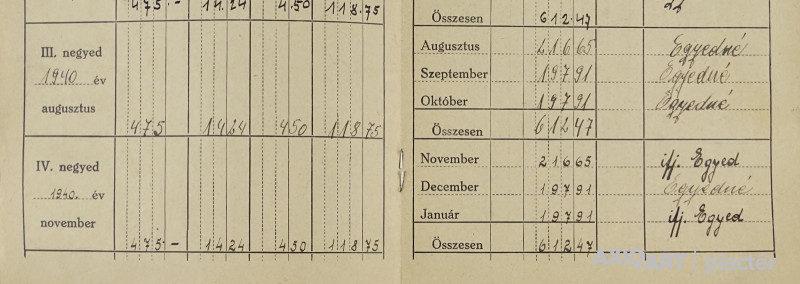 475.- 14.24 4.50 118.75
III. negyed
1940 év
augusztus
475 1424 450 118 75
IV. negyed
1940. év
november
475.- 1424 450 118 75
Összesen 612.47
Augusztus 21665 Egyedné
Szeptember 19791 Egyedné
Október 19791 Egyedné
Összesen 61247
November 21665 ifj. Egyed
December 19791 Egyedné
Január 19791 ifj. Egyed
Összesen 61247
AXIOART piscter